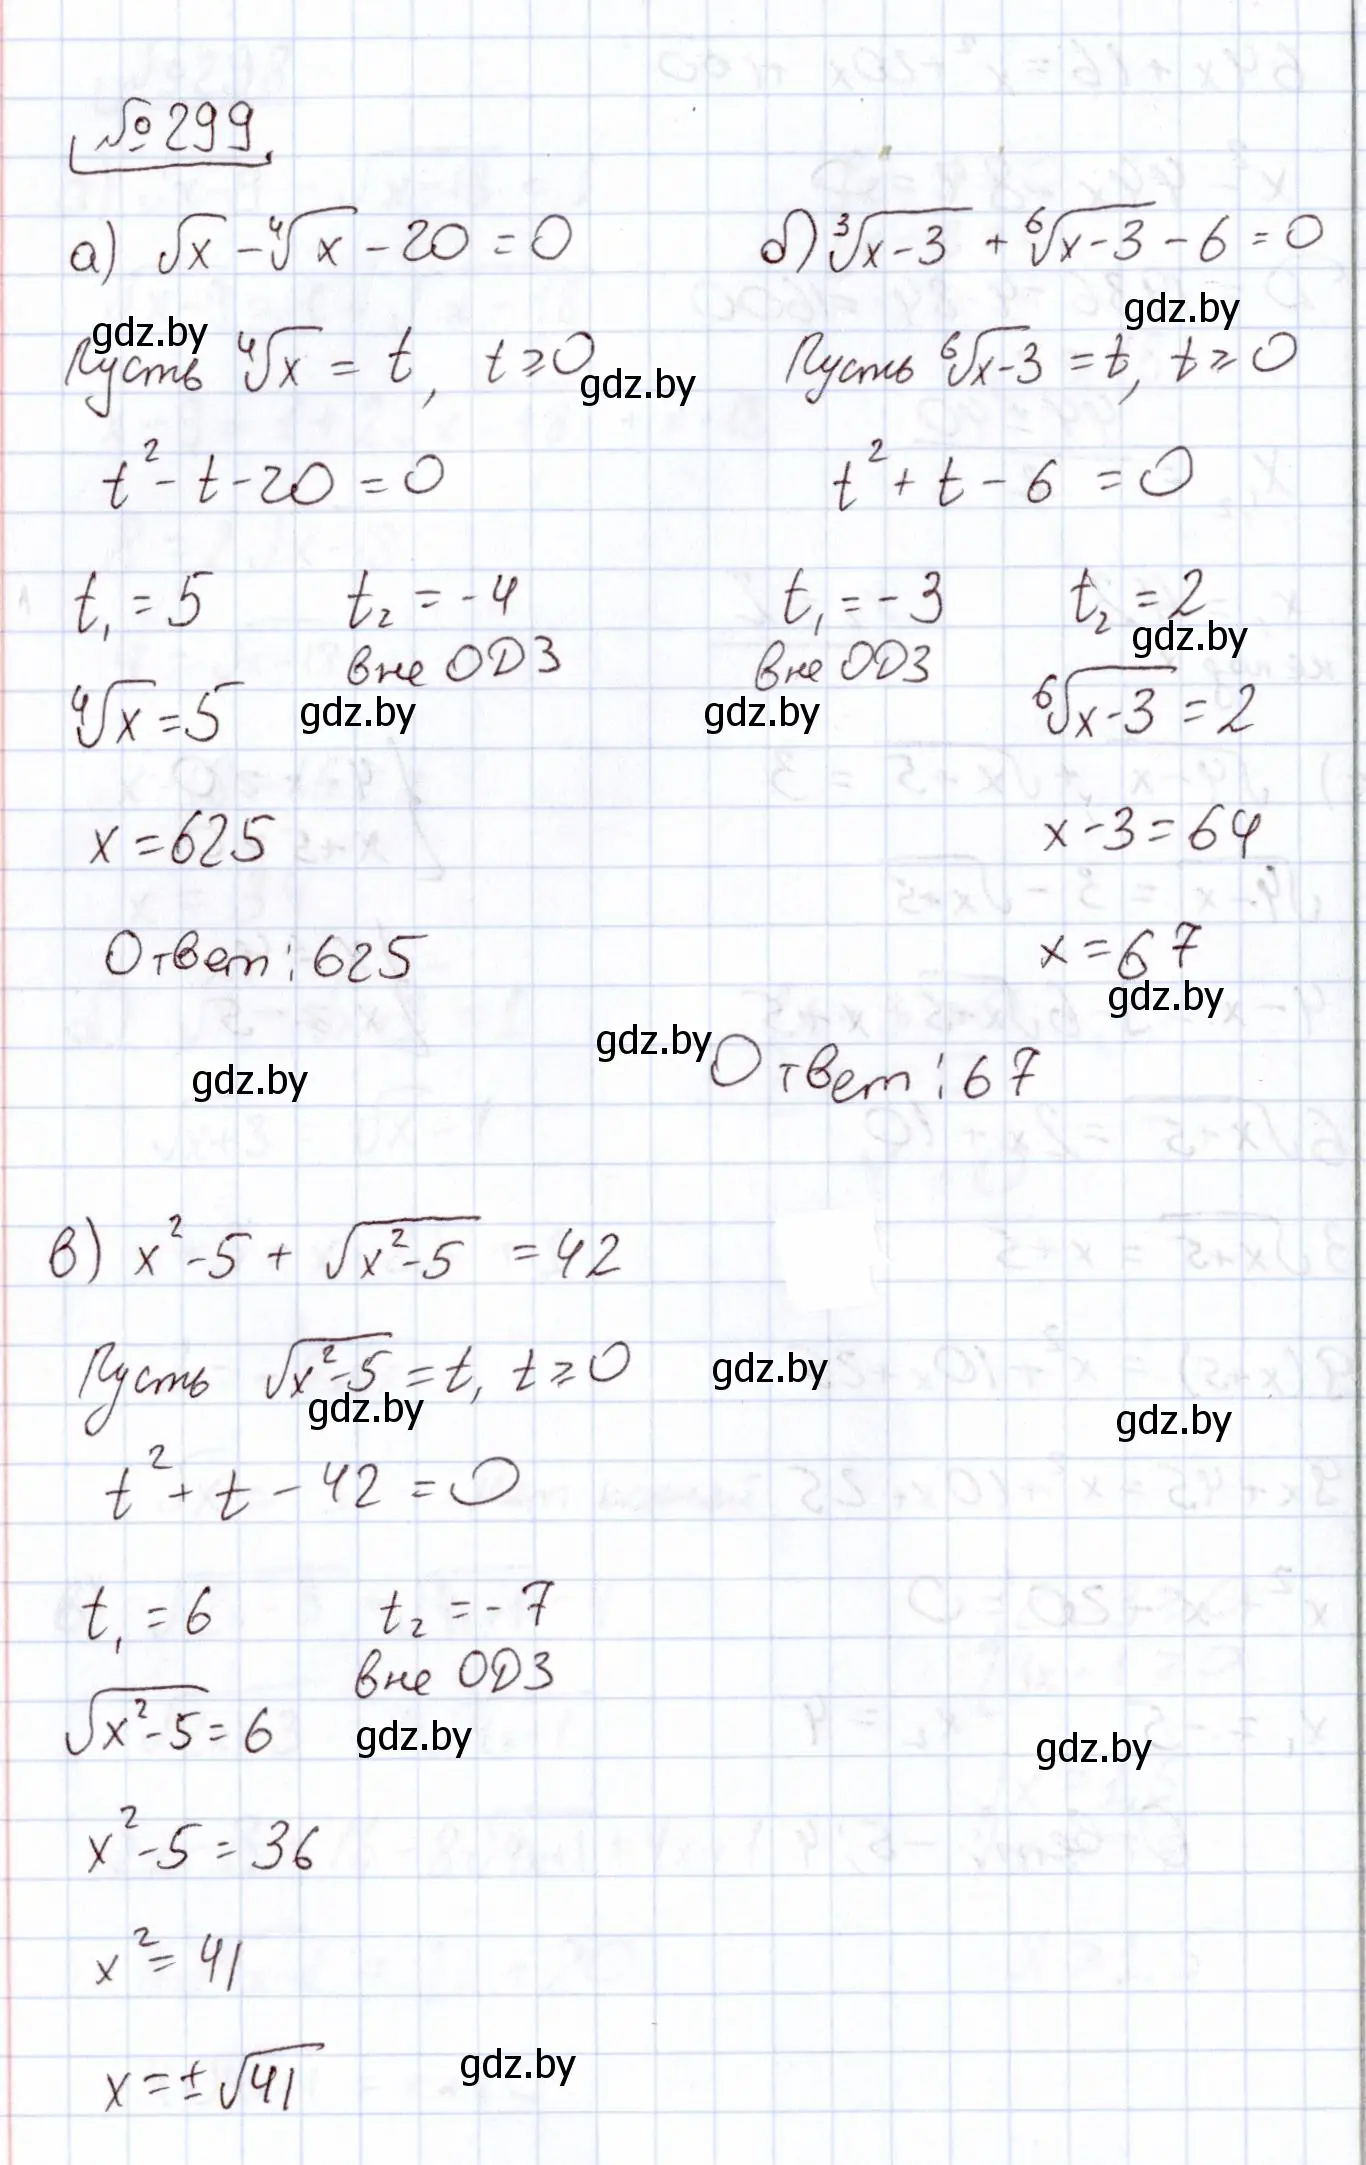 № 299.
а) √x - ⁴√x - 20 = 0
gdz.by
Пусть ⁴√x = t, t ≥ 0
gdz.by
t² - t - 20 = 0
t₁ = 5 t₂ = -4
вне ОДЗ
⁴√x = 5
gdz.by
x = 625
Ответ: 625
gdz.by
б) ³√x-3 + ⁶√x-3 - 6 = 0
gdz.by
Пусть ⁶√x-3 = t, t ≥ 0
t² + t - 6 = 0
t₁ = -3 t₂ = 2
gdz.by
вне ОДЗ
⁶√x-3 = 2
gdz.by
x - 3 = 64
x = 67
gdz.by
gdz.by
Ответ: 67
в) x² - 5 + √x²-5 = 42
Пусть √x²-5 = t, t ≥ 0
gdz.by
gdz.by
gdz.by
t² + t - 42 = 0
t₁ = 6 t₂ = -7
вне ОДЗ
√x²-5 = 6
gdz.by
gdz.by
x² - 5 = 36
x² = 41
x = ±√41
gdz.by